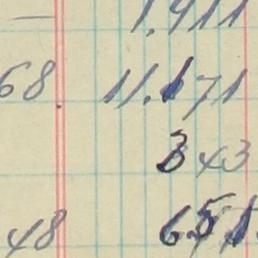 — 1.911
68. 11.171
343
48